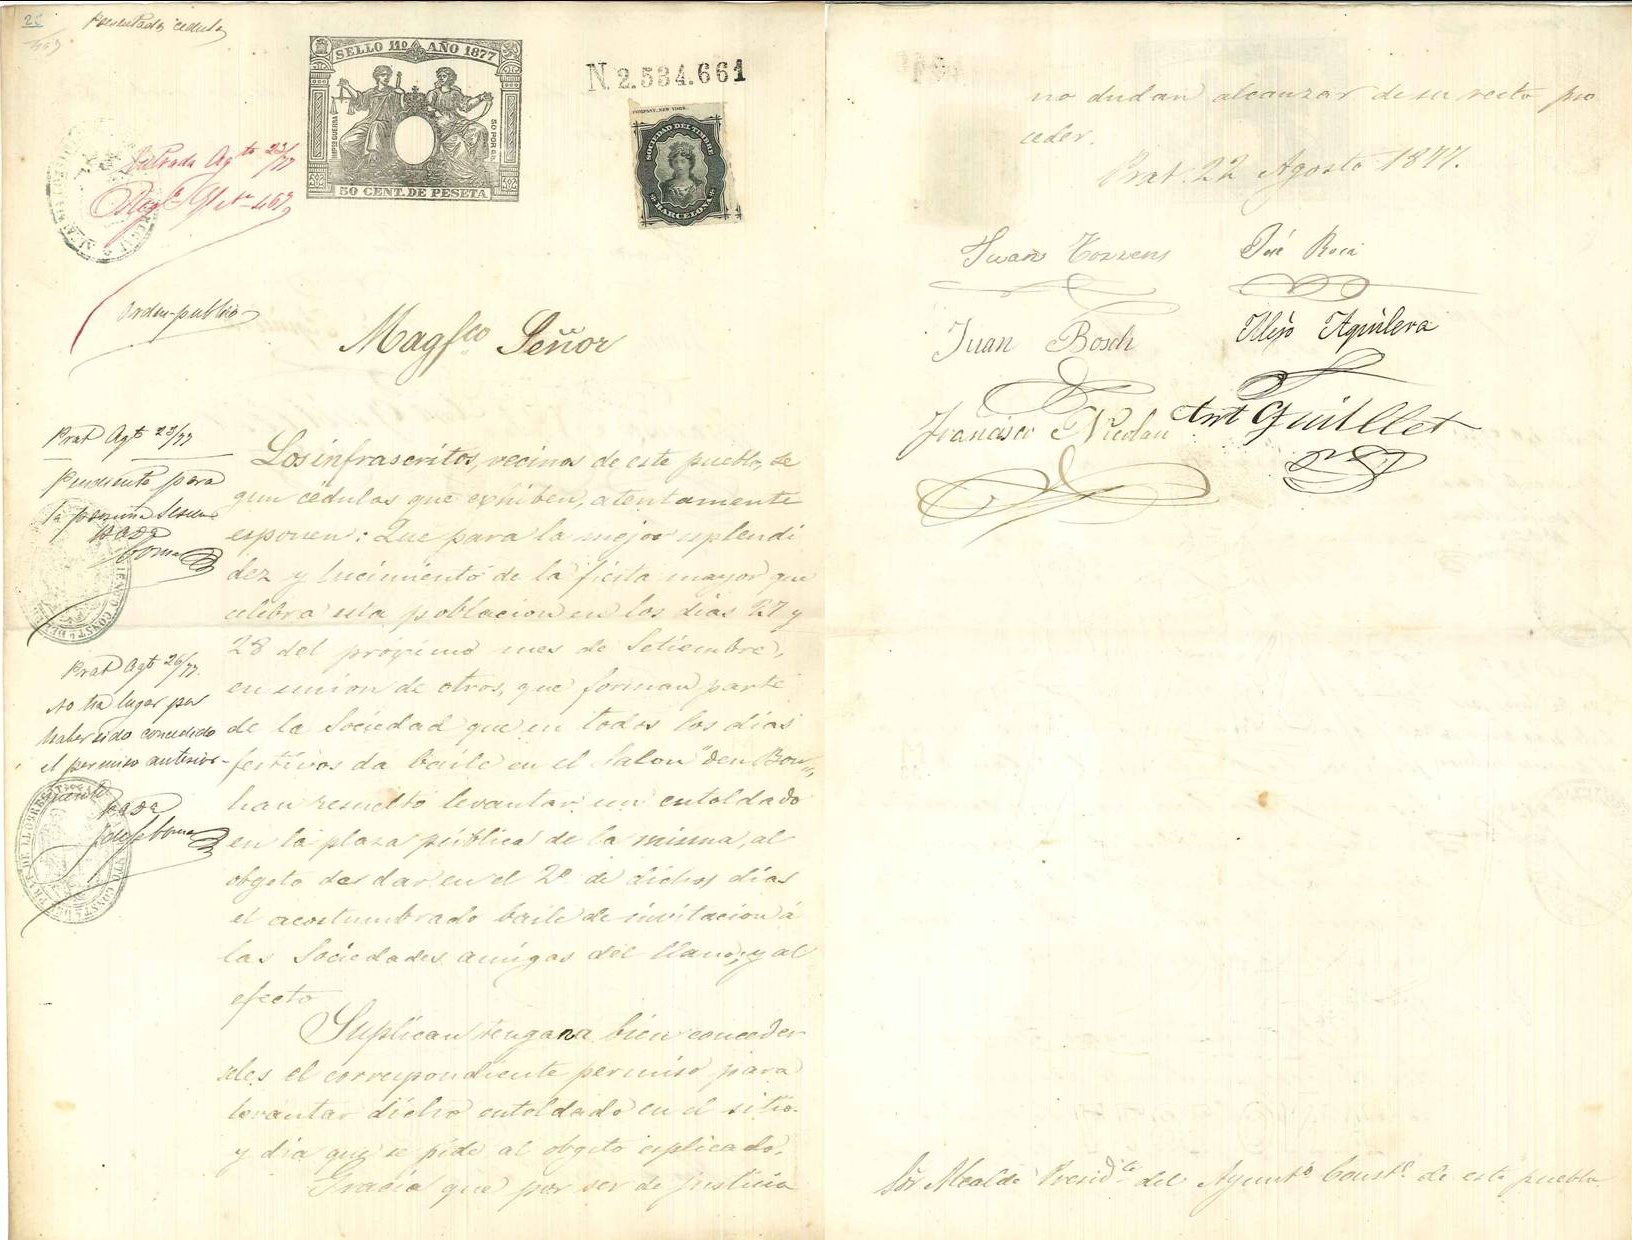 Presentada cedula
SELLO 11º AÑO 1877
IMPTO GUERRA
50 POR 00.
50 CENT. DE PESETA
N.2.534.661
COMPANY, NEW YORK.
SOCIEDAD DEL TIMBRE
BARCELONA
Entrada Agto 23/77
Orden publico
Magfco Señor
Prat Agto 23/77
Pendiente para
la proxima Sesion
Prat Agto 26/77.
No ha lugar por
haber sido concedido
el permiso anterior-
mente
Los infrascritos, vecinos de este pueblo, se
gun cédulas que exhiben, atentamente
esponen: Que para la mejor esplendi
dez y lucimiento de la fiesta mayor que
celebra esta poblacion en los dias 27 y
28 del próximo mes de Setiembre,
en union de otros, que forman parte
de la Sociedad que en todos los dias
festivos da baile en el Salon "den Bou",
han resuelto levantar un entoldado
en la plaza pública de la misma, al
obgeto de dar en el 2º de dichos dias
el acostumbrado baile de invitacion á
las Sociedades amigas del llano; y al
efecto
Suplican tenga a bien conceder
seles el correspondiente permiso para
levantar dicho entoldado en el sitio
y dia que se pide al obgeto esplicado.
Gracia que por ser de justicia
no dudan alcanzar de su recto pro
ceder.
Prat 22 Agosto 1877.
Juan Torrens
José Roca
Juan Bosch
Alejo Aguilera
Francisco Nicolau
Ant Guillet
Sor Alcalde Presidte del Ayuntº Constl de este pueblo